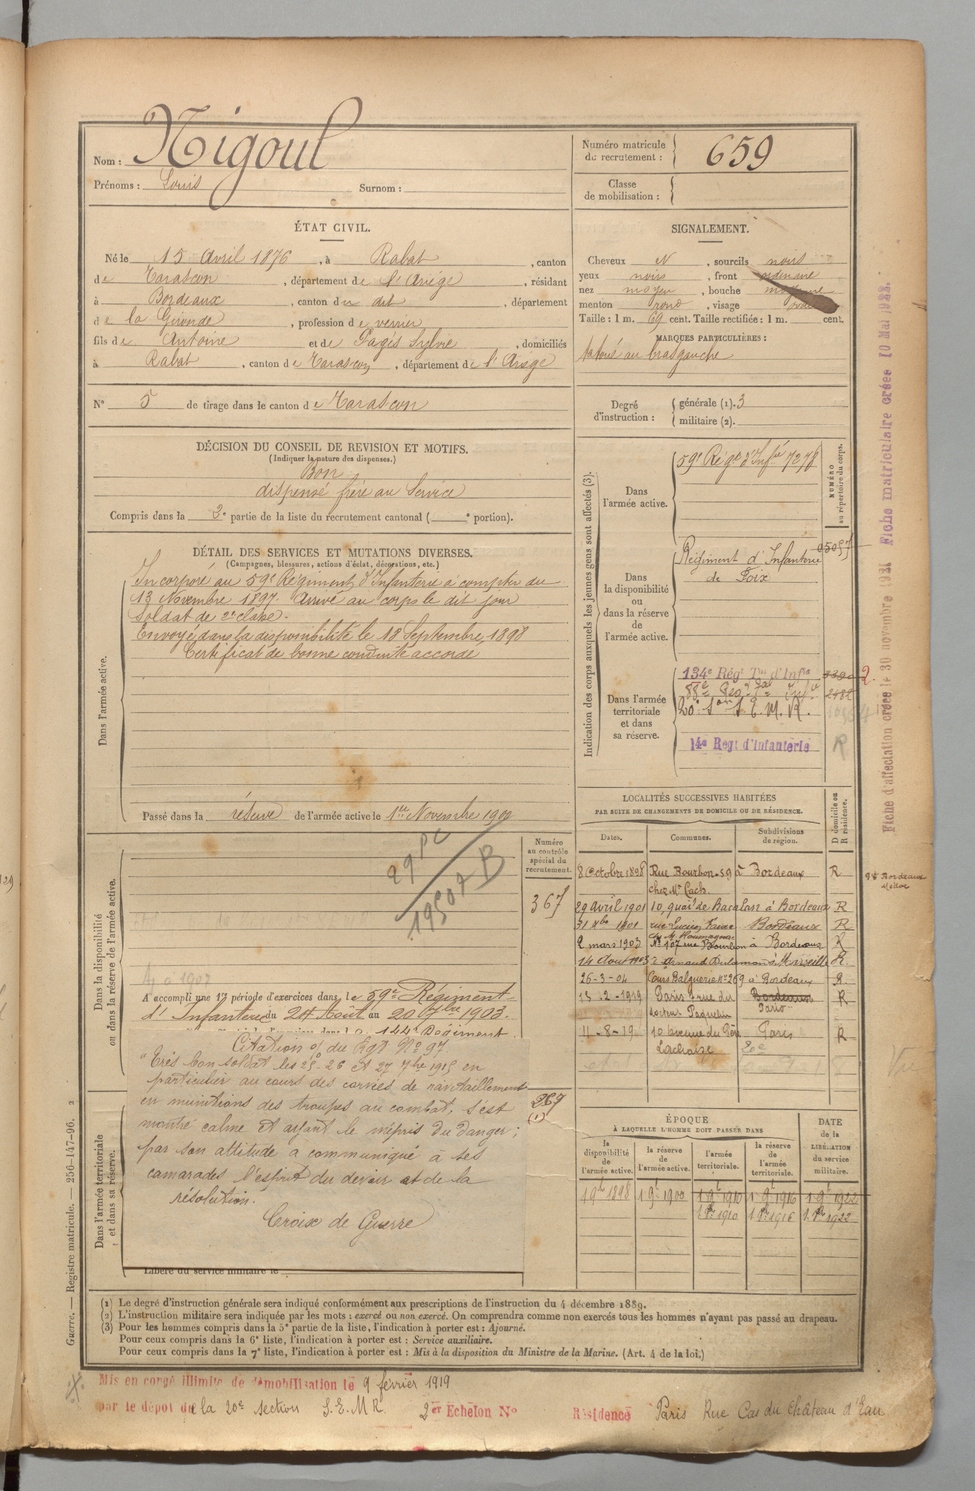 Nom : Nigoul
Prénoms : Louis Surnom :
Numéro matricule du recrutement : 659
Classe de mobilisation :
ÉTAT CIVIL.
Né le 15 Avril 1876, à Rabat, canton
de Tarascon, département de l'Ariège, résidant
à Bordeaux, canton du dit, département
de la Gironde, profession de verrier
fils de Antoine et de Pagès Sylvie, domiciliés
à Rabat, canton de Tarascon, département de l'Ariège
N° 5 de tirage dans le canton de Tarascon
SIGNALEMENT.
Cheveux N, sourcils noirs
yeux noirs, front ordinaire
nez moyen, bouche moyenne
menton rond, visage
Taille : 1 m. 69 cent. Taille rectifiée : 1 m. cent.
MARQUES PARTICULIÈRES :
tatoué au bras gauche
Degré d'instruction : générale (1). 3
militaire (2).
DÉCISION DU CONSEIL DE REVISION ET MOTIFS.
(Indiquer la nature des dispenses.)
Bon
dispensé frère au Service
Compris dans la 3e partie de la liste du recrutement cantonal ( e portion).
DÉTAIL DES SERVICES ET MUTATIONS DIVERSES.
(Campagnes, blessures, actions d'éclat, décorations, etc.)
Dans l'armée active.
Incorporé au 59e Régiment d'Infanterie à compter du
13 Novembre 1897. Arrivé au corps le dit jour
Soldat de 2e classe.
Envoyé dans la disponibilité le 18 Septembre 1898
Certificat de bonne conduite accordé
Passé dans la réserve de l'armée active le 1er Novembre 1900
Indication des corps auxquels les jeunes gens sont affectés (3).
NUMÉRO au répertoire du corps.
Dans l'armée active.
59e Régt d'Infie 7278
Dans la disponibilité ou dans la réserve de l'armée active.
Régiment d'Infanterie
de Foix
Dans l'armée territoriale et dans sa réserve.
134e Régt Tal d'Infie
20e Son S.E.M.R.
14e Régt d'Infanterie
R
LOCALITÉS SUCCESSIVES HABITÉES
PAR SUITE DE CHANGEMENTS DE DOMICILE OU DE RÉSIDENCE.
Dates. Communes. Subdivisions de région. D domicile ou R résidence.
8 Octobre 1898 Rue Bourbon 59 à Bordeaux R
29 Avril 1901 10, quai de Bacalan à Bordeaux R
31 Xbre 1901 Bordeaux R
2 mars 1903 N° 107 rue Bourbon à Bordeaux R
26-3-04 Cours Balguerie n° 269 à Bordeaux R
13-2-1919 Paris rue du Bordeaux R
Paris
11-8-19 10 avenue du Père Paris R
Lachaise
Dans la disponibilité ou dans la réserve de l'armée active.
Numéro au contrôle spécial du recrutement.
367
29 PC
19507 B
A accompli une 1re période d'exercices dans le 59e Régiment
d'Infanterie du 24 Août au 20 7bre 1903.
Dans l'armée territoriale et dans sa réserve.
Citation o/ du Rgt N° 97
"Très bon soldat les 25-26 et 27 7bre 1915 en
particulier au cours des corvées de ravitaillement
en munitions des troupes au combat, s'est
montré calme et ayant le mépris du danger ;
par son attitude a communiqué à ses
camarades l'esprit du devoir et de la
résolution.
Croix de Guerre
267
(1)
Libéré du service militaire le
ÉPOQUE
À LAQUELLE L'HOMME DOIT PASSER DANS
la disponibilité de l'armée active. la réserve de l'armée active. l'armée territoriale. la réserve de l'armée territoriale. DATE de la LIBÉRATION du service militaire.
1 9bre 1898 1 9bre 1900 1 9bre 1910 1 9bre 1916 1 9bre 1922
1 8bre 1910 1 8bre 1916 1 8bre 1922
(1) Le degré d'instruction générale sera indiqué conformément aux prescriptions de l'instruction du 4 décembre 1889.
(2) L'instruction militaire sera indiquée par les mots : exercé ou non exercé. On comprendra comme non exercés tous les hommes n'ayant pas passé au drapeau.
(3) Pour les hommes compris dans la 5e partie de la liste, l'indication à porter est : Ajourné.
Pour ceux compris dans la 6e liste, l'indication à porter est : Service auxiliaire.
Pour ceux compris dans la 7e liste, l'indication à porter est : Mis à la disposition du Ministre de la Marine. (Art. 4 de la loi.)
Mis en congé illimité de démobilisation le 9 février 1919
par le dépôt de la 20e section S.E.M.R. 3er Echelon N° Résidence Paris Rue Cas du Château d'Eau
Guerre. — Registre matricule. — 256-147-96.
Fiche d'affectation créée le 30 novembre 1921 Fiche matriculaire créée 10 Mai 1922.